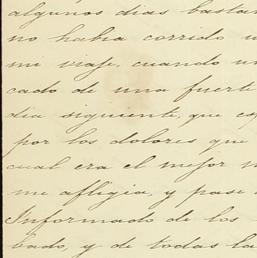 algunos dias bastan
no habia corrido u
mi viaje, cuando un
cado de una fuerte
dia siguiente, que es
por los dolores que
cual era el mejor m
me afligia, y pase
Informado de los
bado, y de todas la